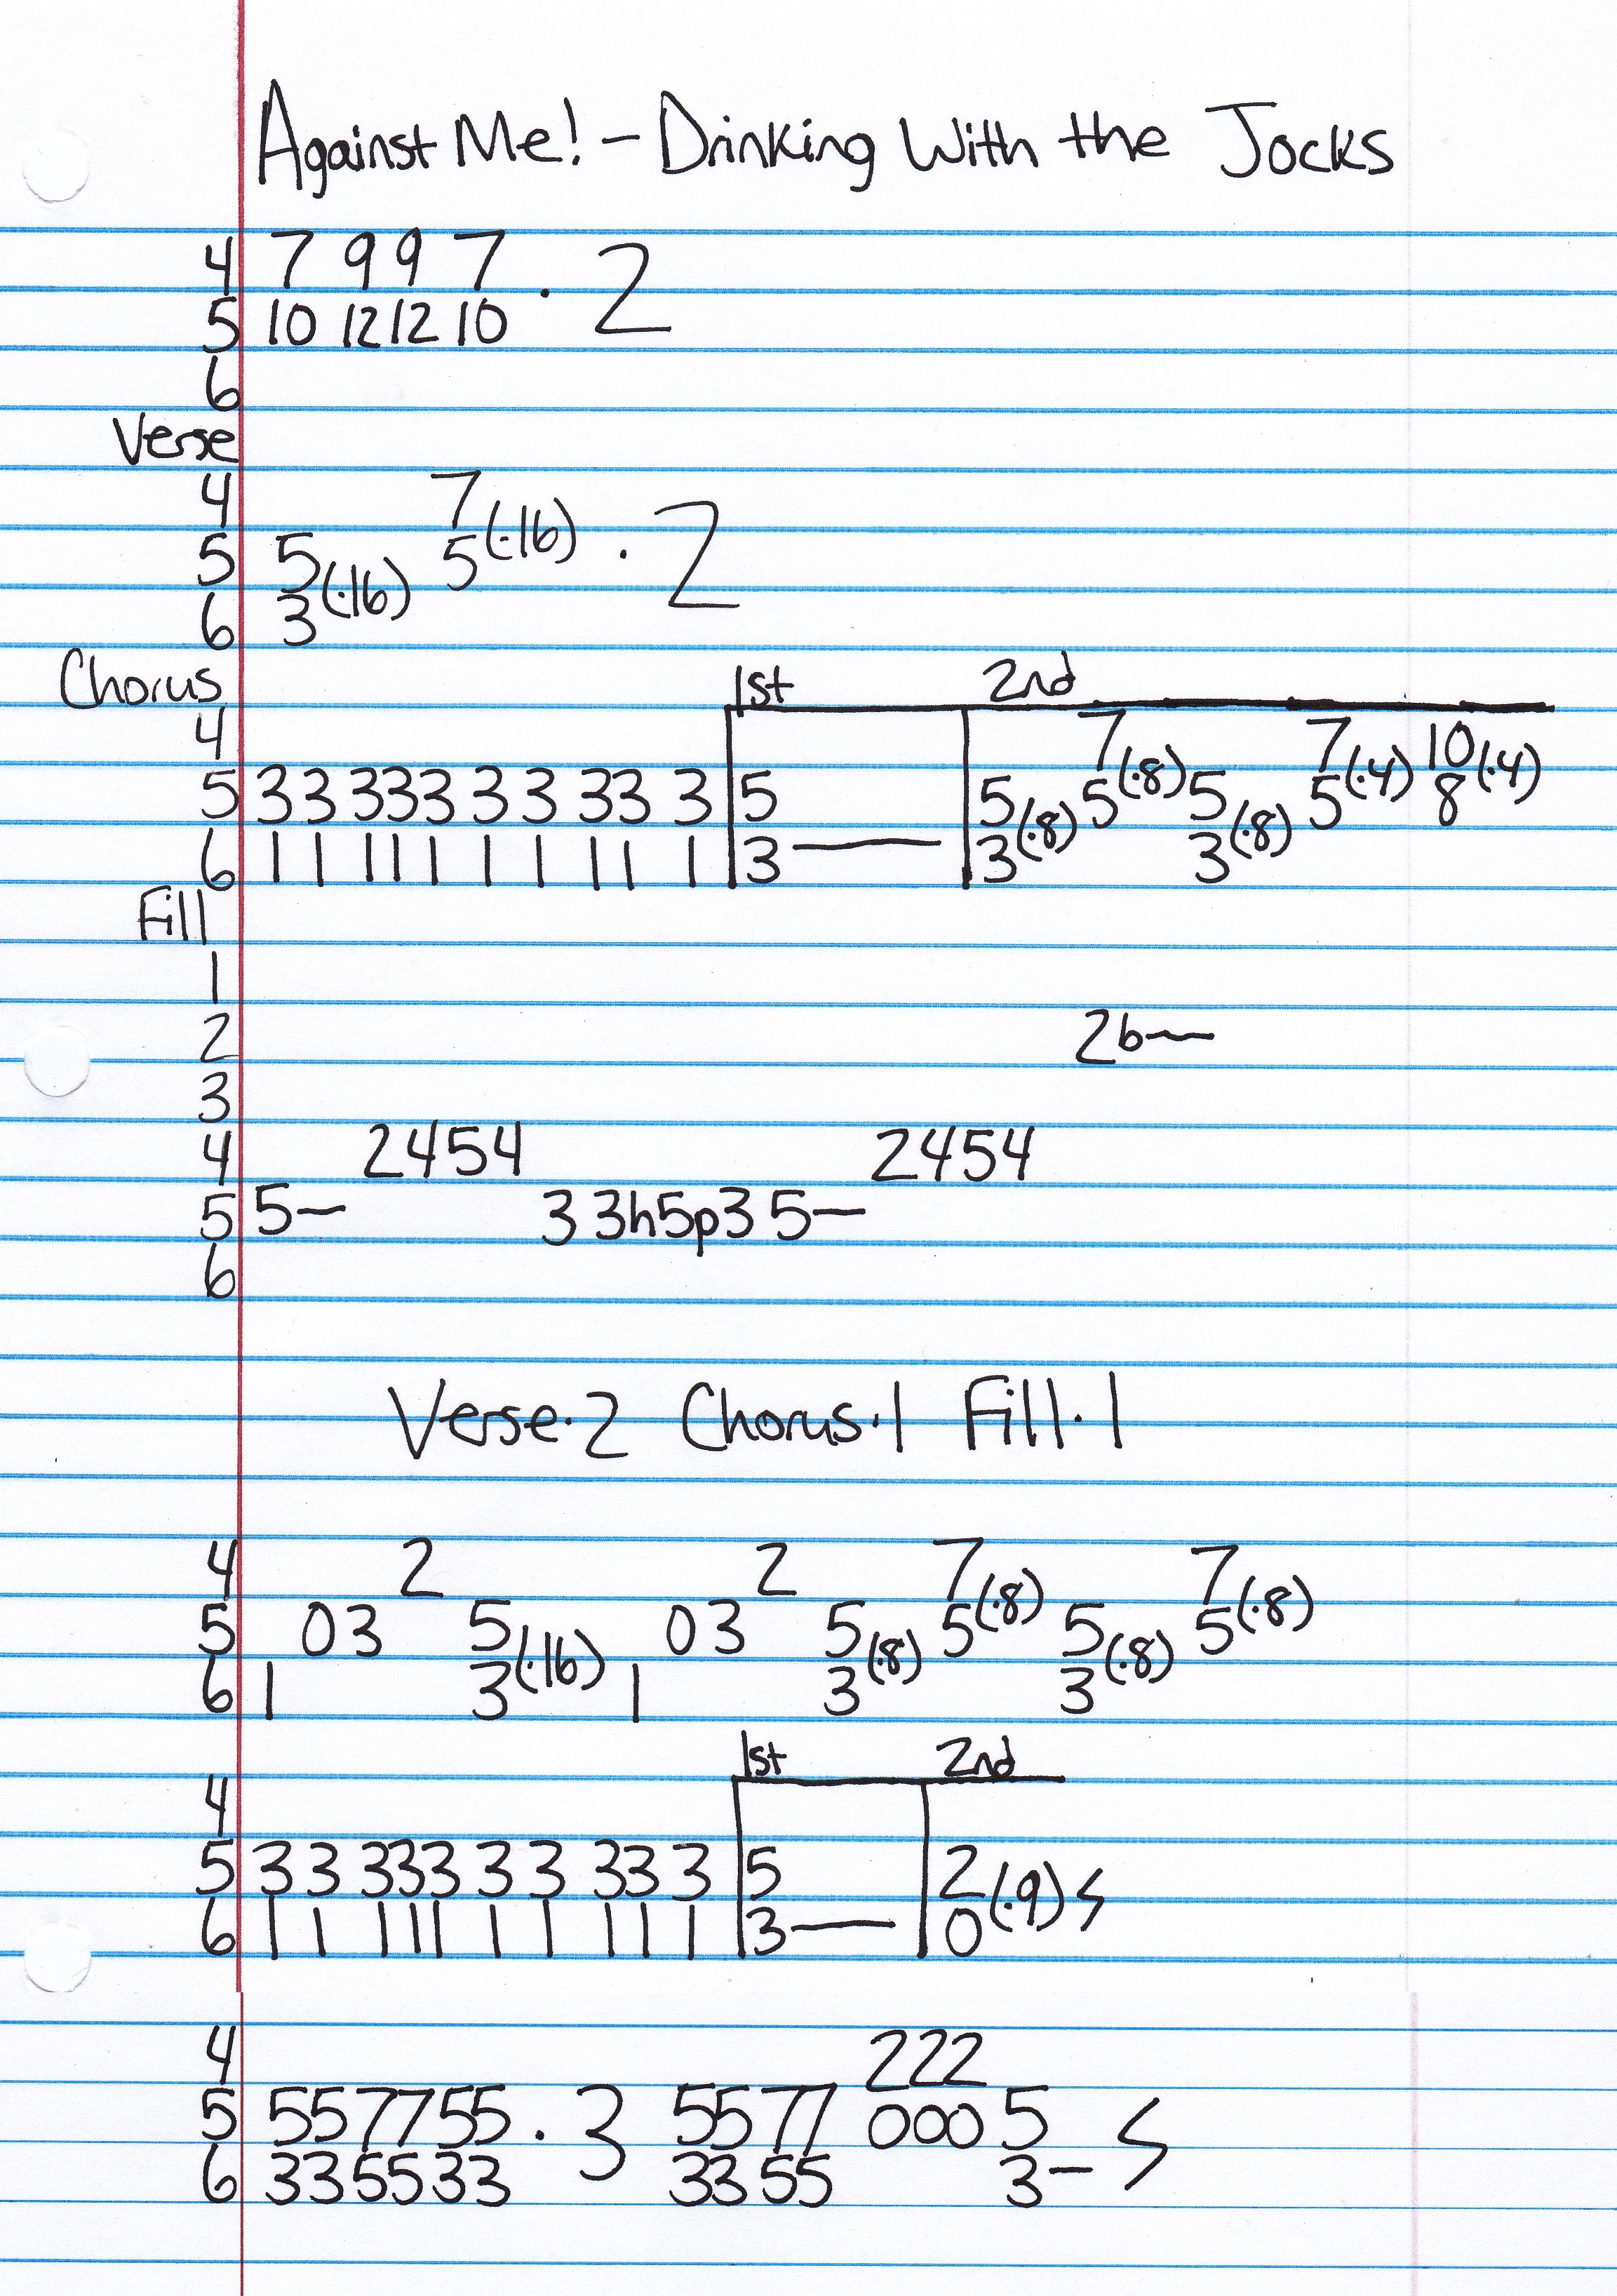 Against Me! - Drinking With the Jocks
4 7 9 9 7
5 10 12 12 10 · 2
6
Verse
4 7
5 5 5 (·16) · 2
6 3 (·16)
Chorus 1st 2nd
4 7 7 10
5 3 3 3 3 3 3 3 3 3 3 5 5 5 (·8) 5 5 (·4) 8 (·4)
6 1 1 1 1 1 1 1 1 1 1 3— 3 (·8) 3 (·8)
Fill
1
2 2b—
3
4 2454 2454
5 5— 3 3h5p3 5—
6
Verse·2 Chorus·1 Fill·1
4 2 2 7 7
5 03 5 03 5 5 (·8) 5 5 (·8)
6 1 3 (·16) 1 3 (·8) 3 (·8)
1st 2nd
4
5 3 3 3 3 3 3 3 3 3 3 5 2
6 1 1 1 1 1 1 1 1 1 1 3— 0 (·9)
4 222
5 557755 · 3 5577 000 5
6 335533 3355 3—